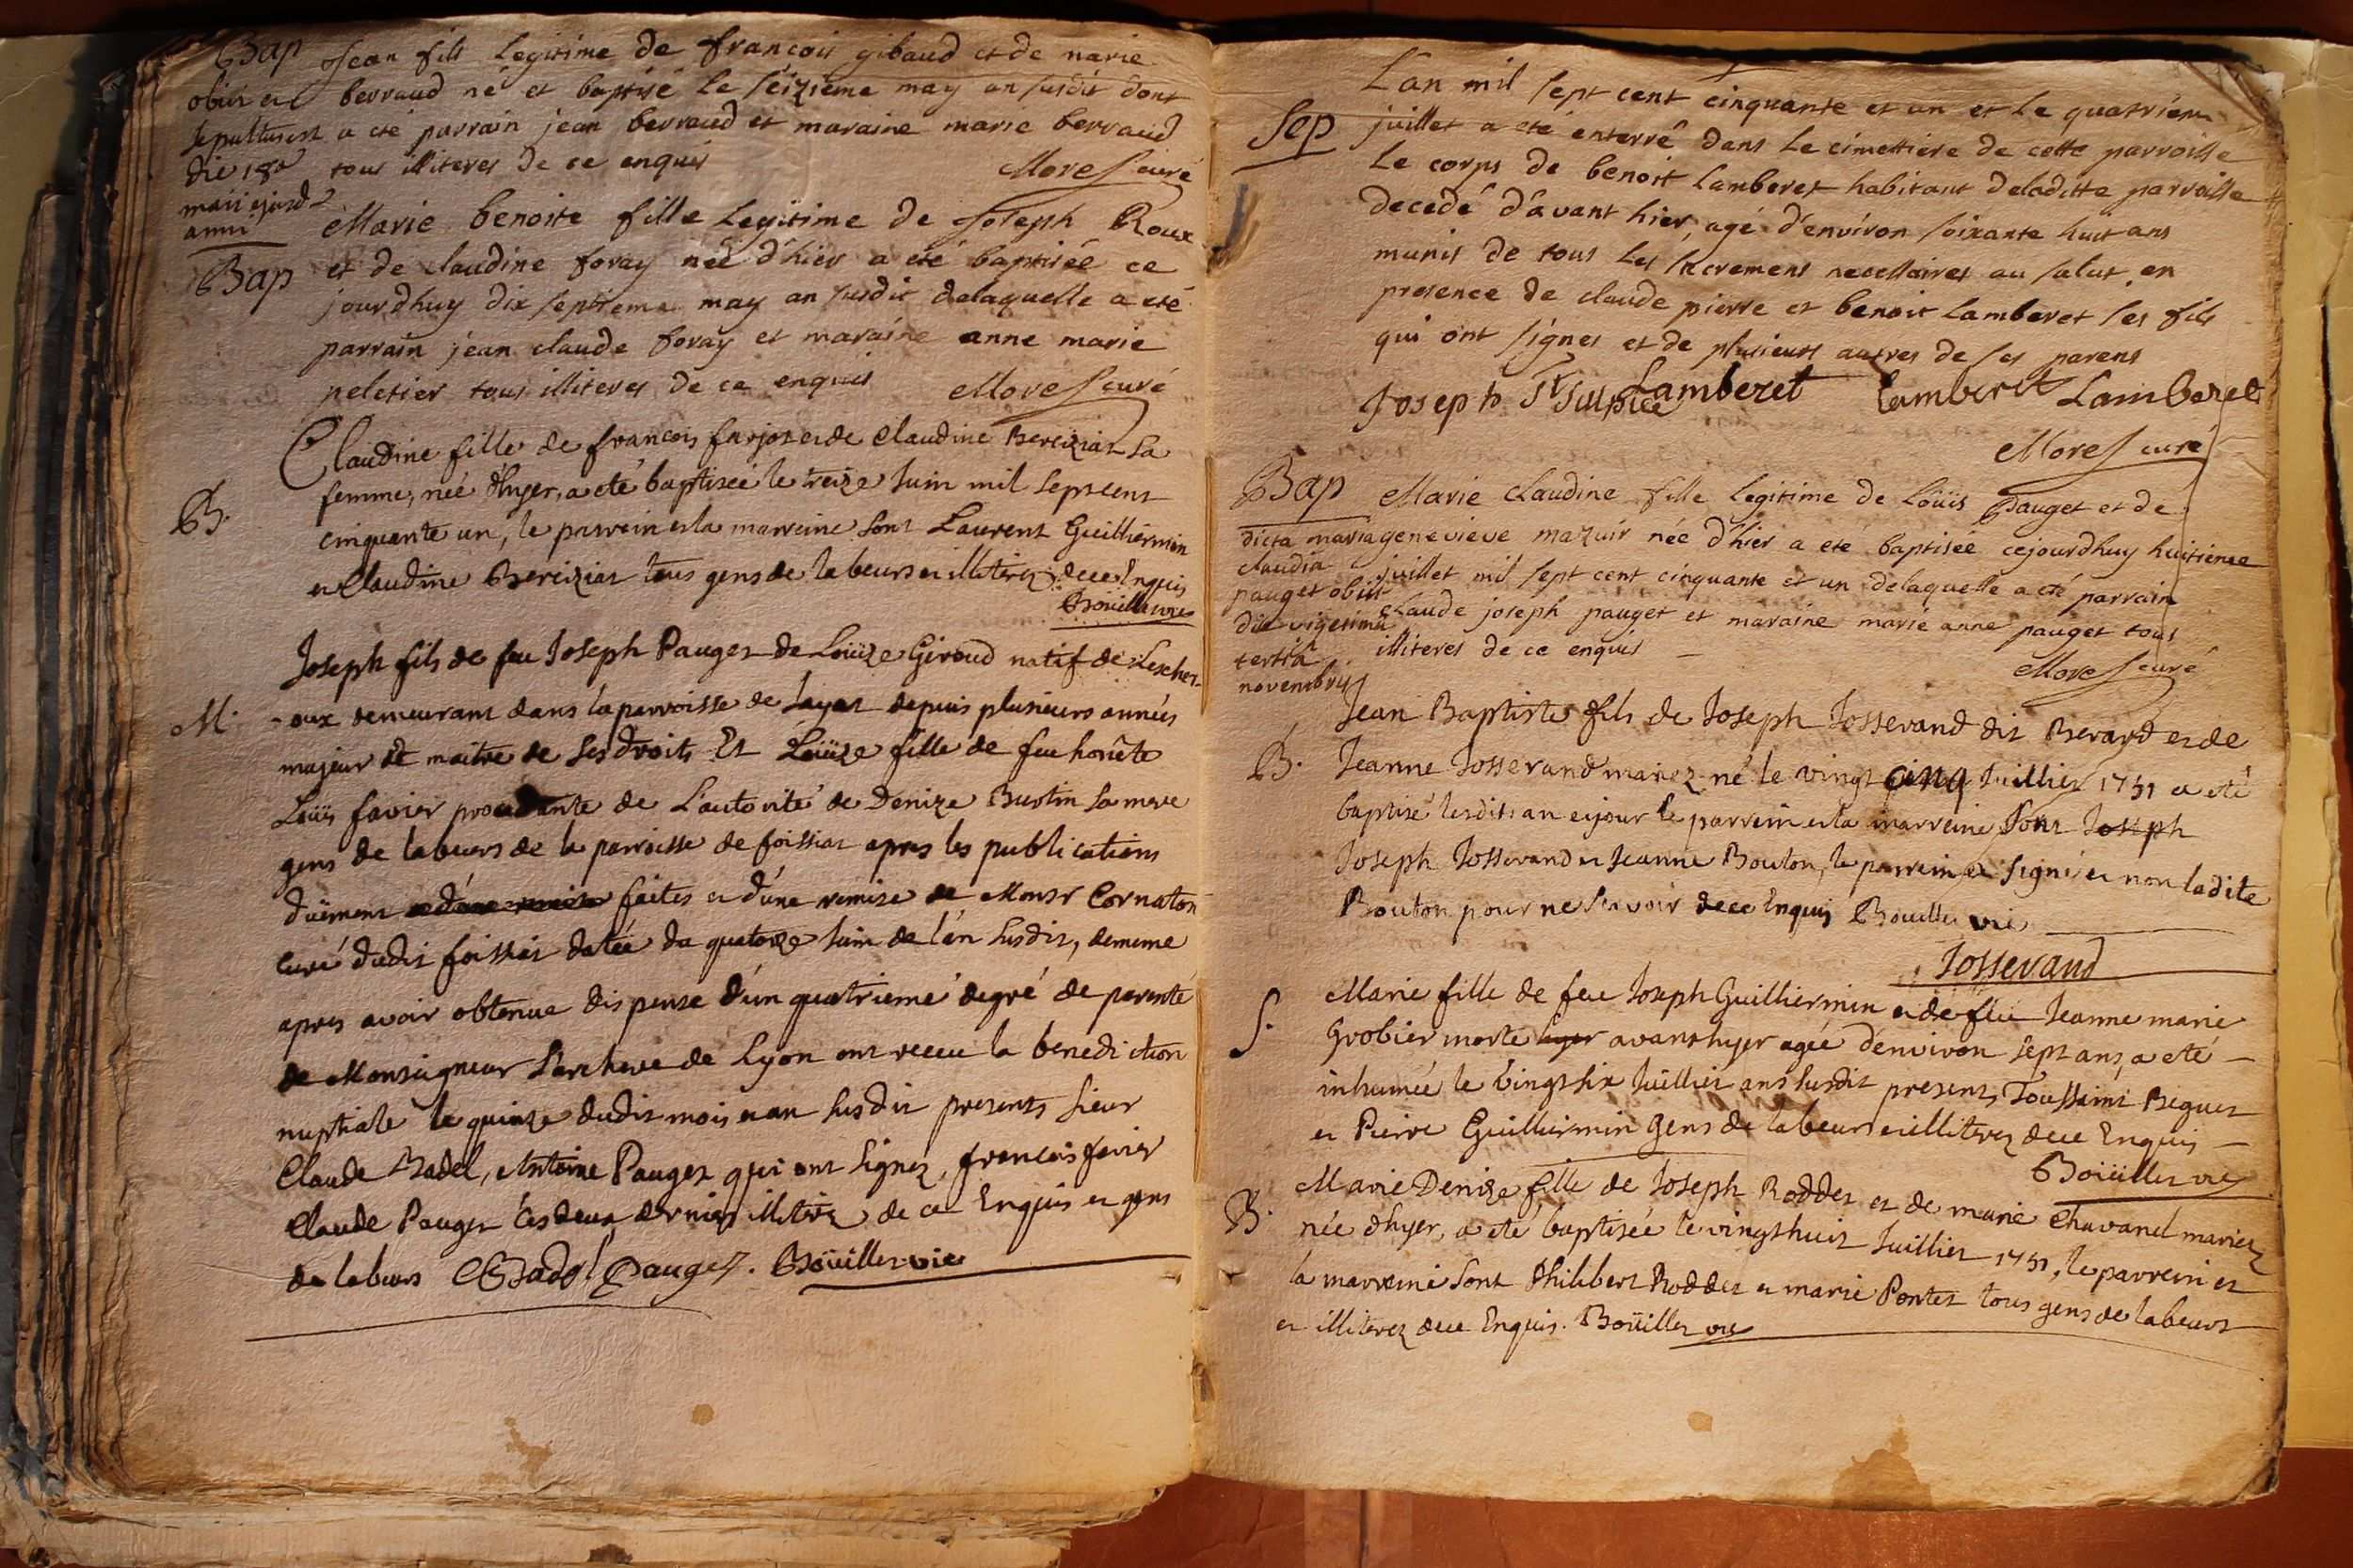 Bap Jean fils legitime de francois gibaud et de marie
obiit et berraud né et baptisé le seizieme may an susdit dont
sepultus est a eté parrain jean berraud et maraine marie berraud
die 18a tous illiteres de ce enquis Morel curé
maii ejusd
anni
Marie benoite fille legitime de Joseph Roux
Bap et de claudine foray née d'hier a eté baptisée ce
jourdhuy dix septieme may an susdit delaquelle a eté
parrain jean claude foray et maraine anne marie
peletier tous illiteres de ce enquis Morel curé
Claudine fille de francois farjot et de Claudine Bereiziat sa
femme, née d'hyer, a eté baptisée le treize Juin mil sept cent
B. cinquante un, le parrein et la marreine sont Laurent Guilliermin
et Claudine Bereiziat tous gens de labeurs et illiterez dece Enquis
Boüiller vic
Joseph fils de feu Joseph Pauget de Loüize Giroud natif de Lescher-
M. -oux demeurant dans la parroisse de Jayat depuis plusieurs années
majeur et maitre de ses droits Et Loüize fille de feu honête
Loüis favier procedante de L'autorité de Denize Bustin sa mere
gens de labeurs de la parroisse de foissiat apres les publications
duëment faites et d'une remise de Monsr Cornaton
curé dudit foissiat datée du quatorze Juin de l'an susdit, dememe
apres avoir obtenue dispense d'un quatrieme degré de parenté
de Monseigneur L'archeve de Lyon ont receu la benediction
nuptiale le quinze dudit mois et an susdit presents sieur
Claude Badel, Antoine Pauget qui ont signez, francois favier
Claude Pauget les deux derniers illiterez de ce Enquis et gens
de labeurs CBadel Pauget. Boüiller vic
Lan mil sept cent cinquante et un et le quatrieme
Sep juillet a eté enterré dans le cimettiere de cette parroisse
le corps de benoit Lamberet habitant deladitte parroisse
decedé d'avant hier, agé d'environ soixante huit ans
munis de tous les sacremens necessaires au salut, en
presence de claude pierre et benoit Lamberet ses fils
qui ont signes et de plusieurs autres de ses parens
Joseph St Sulpice Lamberet Lamberet Lamberet
Morel curé
Bap Marie Claudine fille legitime de Loüis Pauget et de
dicta maria genevieve mazuir née d'hier a eté baptisée cejourdhuy huitieme
claudia juillet mil sept cent cinquante et un delaquelle a eté parrain
pauget obiit claude joseph pauget et maraine marie anne pauget tous
die vigesima illiteres de ce enquis
tertia Morel curé
novembris
Jean Baptiste fils de Joseph Josserand dit Berard et de
B. Jeanne Josserand mariez né le vingt cinq Juilliet 1751 a eté
baptisé lesdits an et jour le parrein et la marreine sont Joseph
Joseph Josserand et Jeanne Bouton, le parrein a signé et non ladite
Bouton pour ne sçavoir dece Enquis Boüiller vic
Josserand
Marie fille de feu Joseph Guilliermin et de feüe Jeanne marie
S. Grobier morte hyer avant hyer agée d'environ sept ans, a eté
inhumée le vingt six Juilliet ans susdit presents, Toussaint Beguet
et Pierre Guilliermin gens de labeurs et illiterez dece Enquis
Boüiller vic
Marie Denize fille de Joseph Roddet et de marie Chavanel mariez
B. née d'hyer, a eté baptisée le vingt huit Juilliet 1751, le parrein et
la marreine sont Philibert Roddet et marie Pontet tous gens de labeurs
et illiterez dece Enquis. Boüiller vic